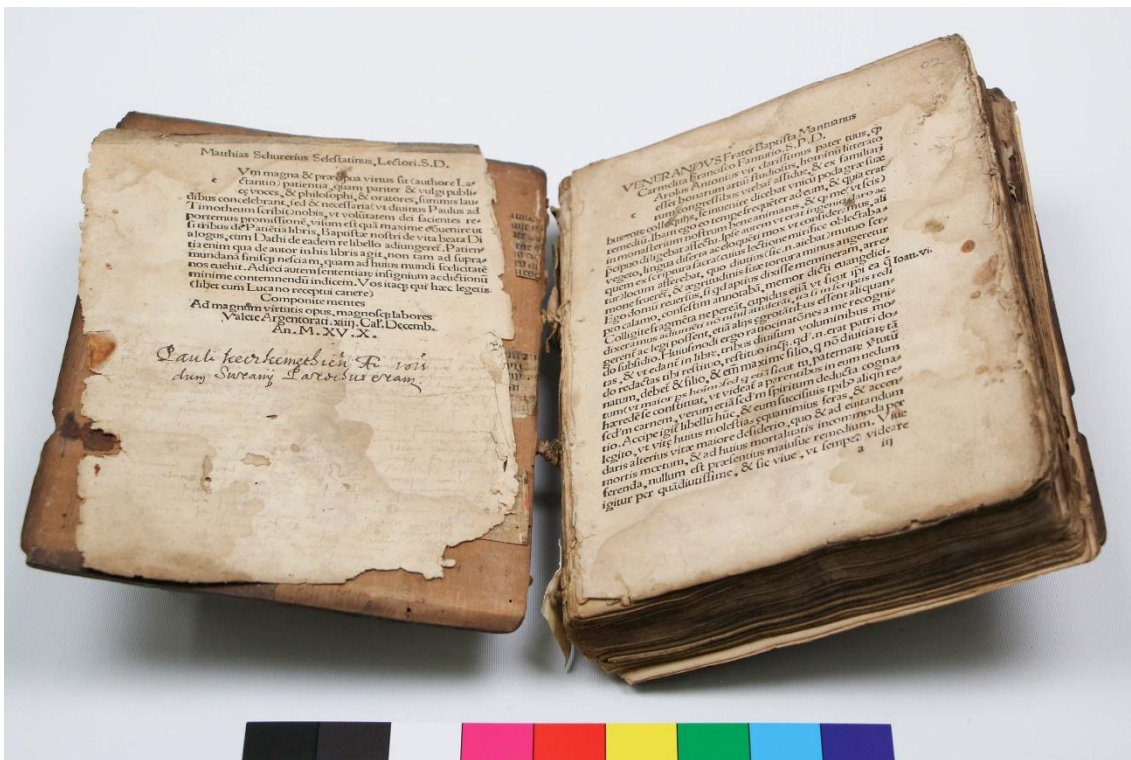 Matthias Schurerius Selestatinus, Lectori. S. D.
c Vm magna & præcipua virtus sit (authore La-
ctantio) patientia, quam pariter & vulgi publi-
cę voces, & philosophi, & oratores, summis lau-
dibus concelebrant, sed & necessaria (vt diuinus Paulus ad
Timotheum scribit) nobis, vt volūtatem dei facientes re-
portemus promissionē, visum est quā maxime cōuenire ut
si tribus de Patiētia libris, Baptistæ nostri de vita beata Di
alogus, cum Dathi de eadem re libello adiungeret. Patien-
tia enim qua de autor in his libris agit, non tam ad supra-
mundanā finisq; nesciam, quam ad huius mundi fœlicitatē
nos euehit. Adieci autem sententiarū insignium ac dictionū
minime contemnendū indicem. Vos itaq; qui hæc legetis
(libet cum Lucano receptui canere)
Componite mentes
Ad magnum virtutis opus, magnosq; labores
Valete Argentorati. xiiij. Cal. Decemb.
An. M. XV. X.
Pauli
dum Parochus eram.
02
VENERANDVS Frater Baptista Mantuanus
Carmelita Francisco Fanturio. S. P. D.
c Arolus Antonius vir clarissimus pater tuus, qp
esset bonarum artiū studiosus, hominū litterato
rum congressibus vtebatur assidue, & ex familiari
busrore colloquijs, se inuenire dicebat vnicū podagræ suæ
remediū. Ibam ego eo tempe frequēter ad eum, & quia erat
in monasterium nostrum beneanimatus, & q; me (vt scis)
perpio diligebat affectu. Ipse autem vt erat ingenio claro ac
vegeto, lingua diserta ac eloquēti mox vt considebamus, ali
quem ex scriptura sacra (cuius lectione mirifice oblectaba-
tur) locum afferebat, quo diutius (sic .n. aiebat) mutuo ser-
mone frueret, & ægritudinis suæ tortura minus angeretur
Ego domū reuersus, si qd aptius dixisse memineram, arre-
pto calamo, confestim annotabā, memor dicti euangelici
Colligite fragmēta ne pereāt, cupidus etiā vt sicut ipsi ea q̄ Ioan. vi.
dixeramus adiumēto
gerent ac legi possent, etiā alijs ęgrotātibus essent aliquan-
do subsidio. Huiusmodi ergo ratiocinatiōnes a me recogni-
tas, & vt edant in libre, tribus diuisum voluminibus mo-
do redactas tibi restituo, restituo inq̄. qd .n. erat patri do-
natum, debet & filio, & em maxime filio, q nō diuitiarę tā
tum (vt maior ps hoīm sed) etiā sicut tn, paternarę Vtutū
hæredē se constituat, vt videat a parentibus in eum nedum
scd'm carnem, verum etiā scd'm spiritum deducta cogna-
tio. Accipe igit libellū hūc, & eum succisiuis tpibo aliqn re-
legito, vt vitę huius molestias equanimius feras, & accen-
daris alterius vitæ maiore desiderio, quo & ad euitandum
mortis mœtum, & ad huius mortalitatis incommoda per
ferenda, nullum est præsentius maiusue remedium. Viue
igitur per quādiutissime, & sic viue, vt semper videare
a iij